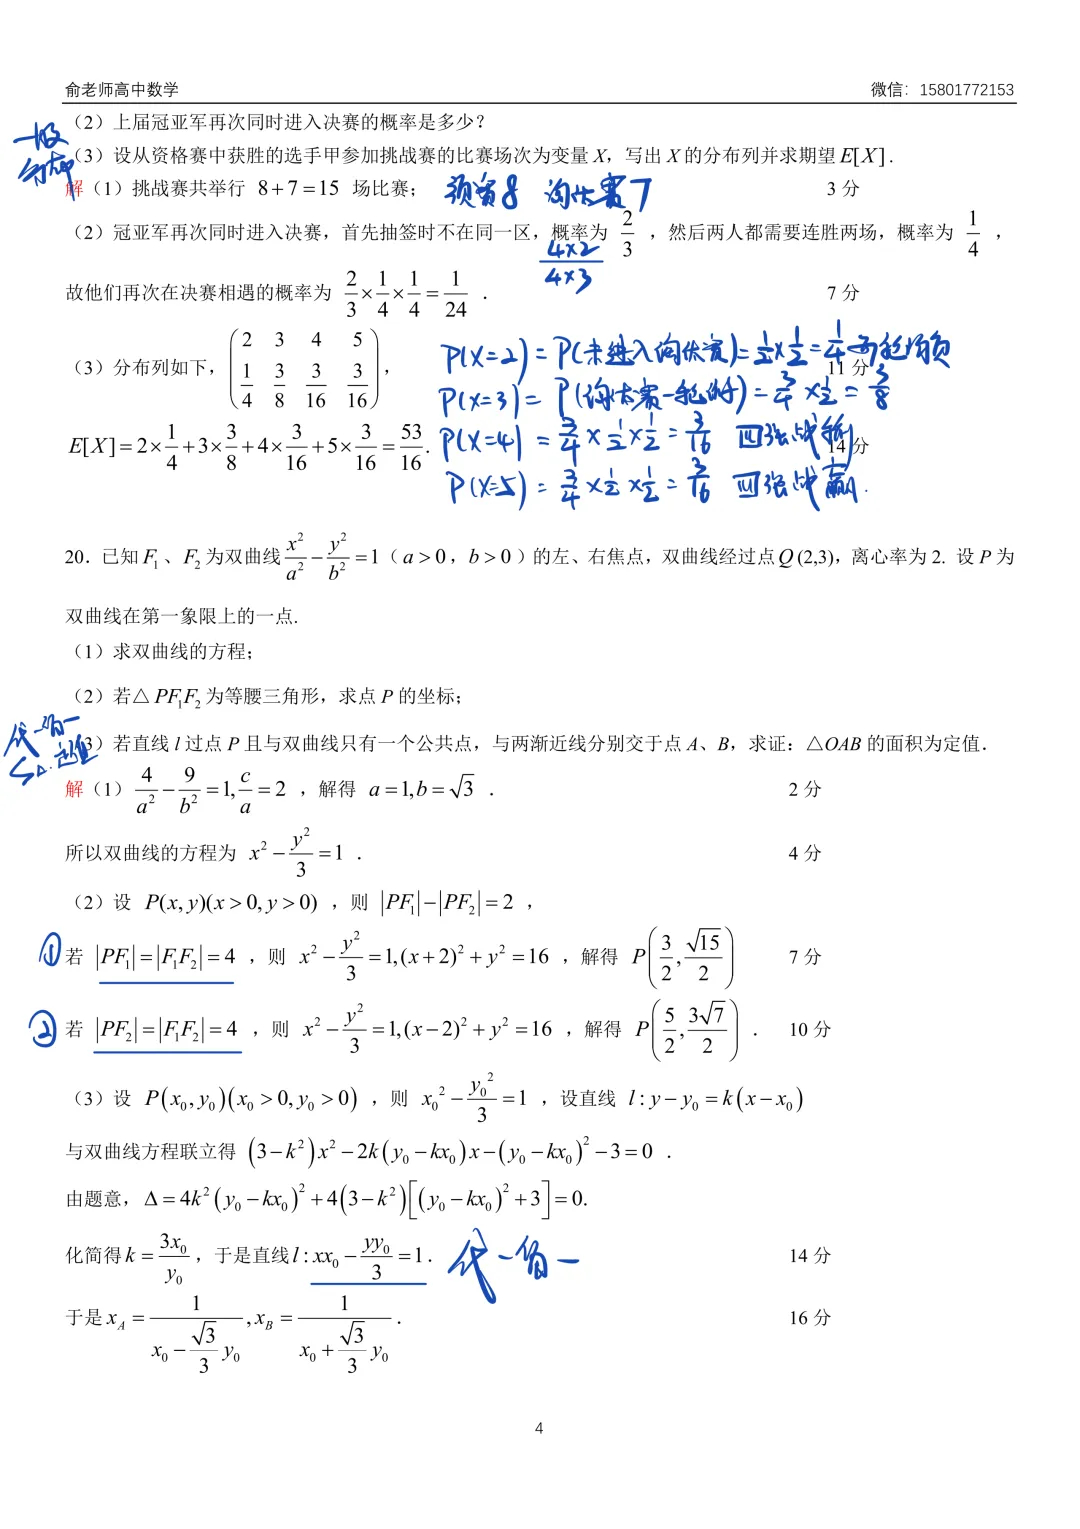 俞老师高中数学 微信：15801772153
（2）上届冠亚军再次同时进入决赛的概率是多少？
一般
（3）设从资格赛中获胜的选手甲参加挑战赛的比赛场次为变量 X，写出 X 的分布列并求期望 E[X].
解（1）挑战赛共举行 8+7=15 场比赛； 预赛8 淘汰赛7 3 分
（2）冠亚军再次同时进入决赛，首先抽签时不在同一区，概率为 2/3 ，然后两人都需要连胜两场，概率为 1/4 ，
4×2/4×3
故他们再次在决赛相遇的概率为 2/3×1/4×1/4=1/24 ． 7 分
（3）分布列如下，(2 3 4 5; 1/4 3/8 3/16 3/16)， 11 分
P(X=2)=P(未进入淘汰赛)=1/2×1/2=1/4 两轮均负
P(X=3)=P(淘汰赛一轮)=3/4×1/2=3/8
E[X]=2×1/4+3×3/8+4×3/16+5×3/16=53/16. 14 分
P(X=4)=3/4×1/2×1/2=3/16 四强战输
P(X=5)=3/4×1/2×1/2=3/16 四强战赢 .
20．已知 F₁、F₂ 为双曲线 x²/a²−y²/b²=1（a>0，b>0）的左、右焦点，双曲线经过点 Q (2,3)，离心率为 2. 设 P 为
双曲线在第一象限上的一点.
（1）求双曲线的方程；
（2）若△PF₁F₂ 为等腰三角形，求点 P 的坐标；
代一留一
S△.定值
3）若直线 l 过点 P 且与双曲线只有一个公共点，与两渐近线分别交于点 A、B，求证：△OAB 的面积为定值．
解（1）4/a²−9/b²=1, c/a=2 ，解得 a=1,b=√3 ． 2 分
所以双曲线的方程为 x²−y²/3=1 ． 4 分
（2）设 P(x,y)(x>0,y>0) ，则 |PF₁|−|PF₂|=2 ，
① 若 |PF₁|=|F₁F₂|=4 ，则 x²−y²/3=1,(x+2)²+y²=16 ，解得 P(3/2,√15/2) 7 分
② 若 |PF₂|=|F₁F₂|=4 ，则 x²−y²/3=1,(x−2)²+y²=16 ，解得 P(5/2,3√7/2) ． 10 分
（3）设 P(x₀,y₀)(x₀>0,y₀>0) ，则 x₀²−y₀²/3=1 ，设直线 l:y−y₀=k(x−x₀)
与双曲线方程联立得 (3−k²)x²−2k(y₀−kx₀)x−(y₀−kx₀)²−3=0 ．
由题意，Δ=4k²(y₀−kx₀)²+4(3−k²)[(y₀−kx₀)²+3]=0.
化简得 k=3x₀/y₀ ，于是直线 l:xx₀−yy₀/3=1． 代一留一 14 分
于是 x_A=1/(x₀−(√3/3)y₀), x_B=1/(x₀+(√3/3)y₀)． 16 分
4